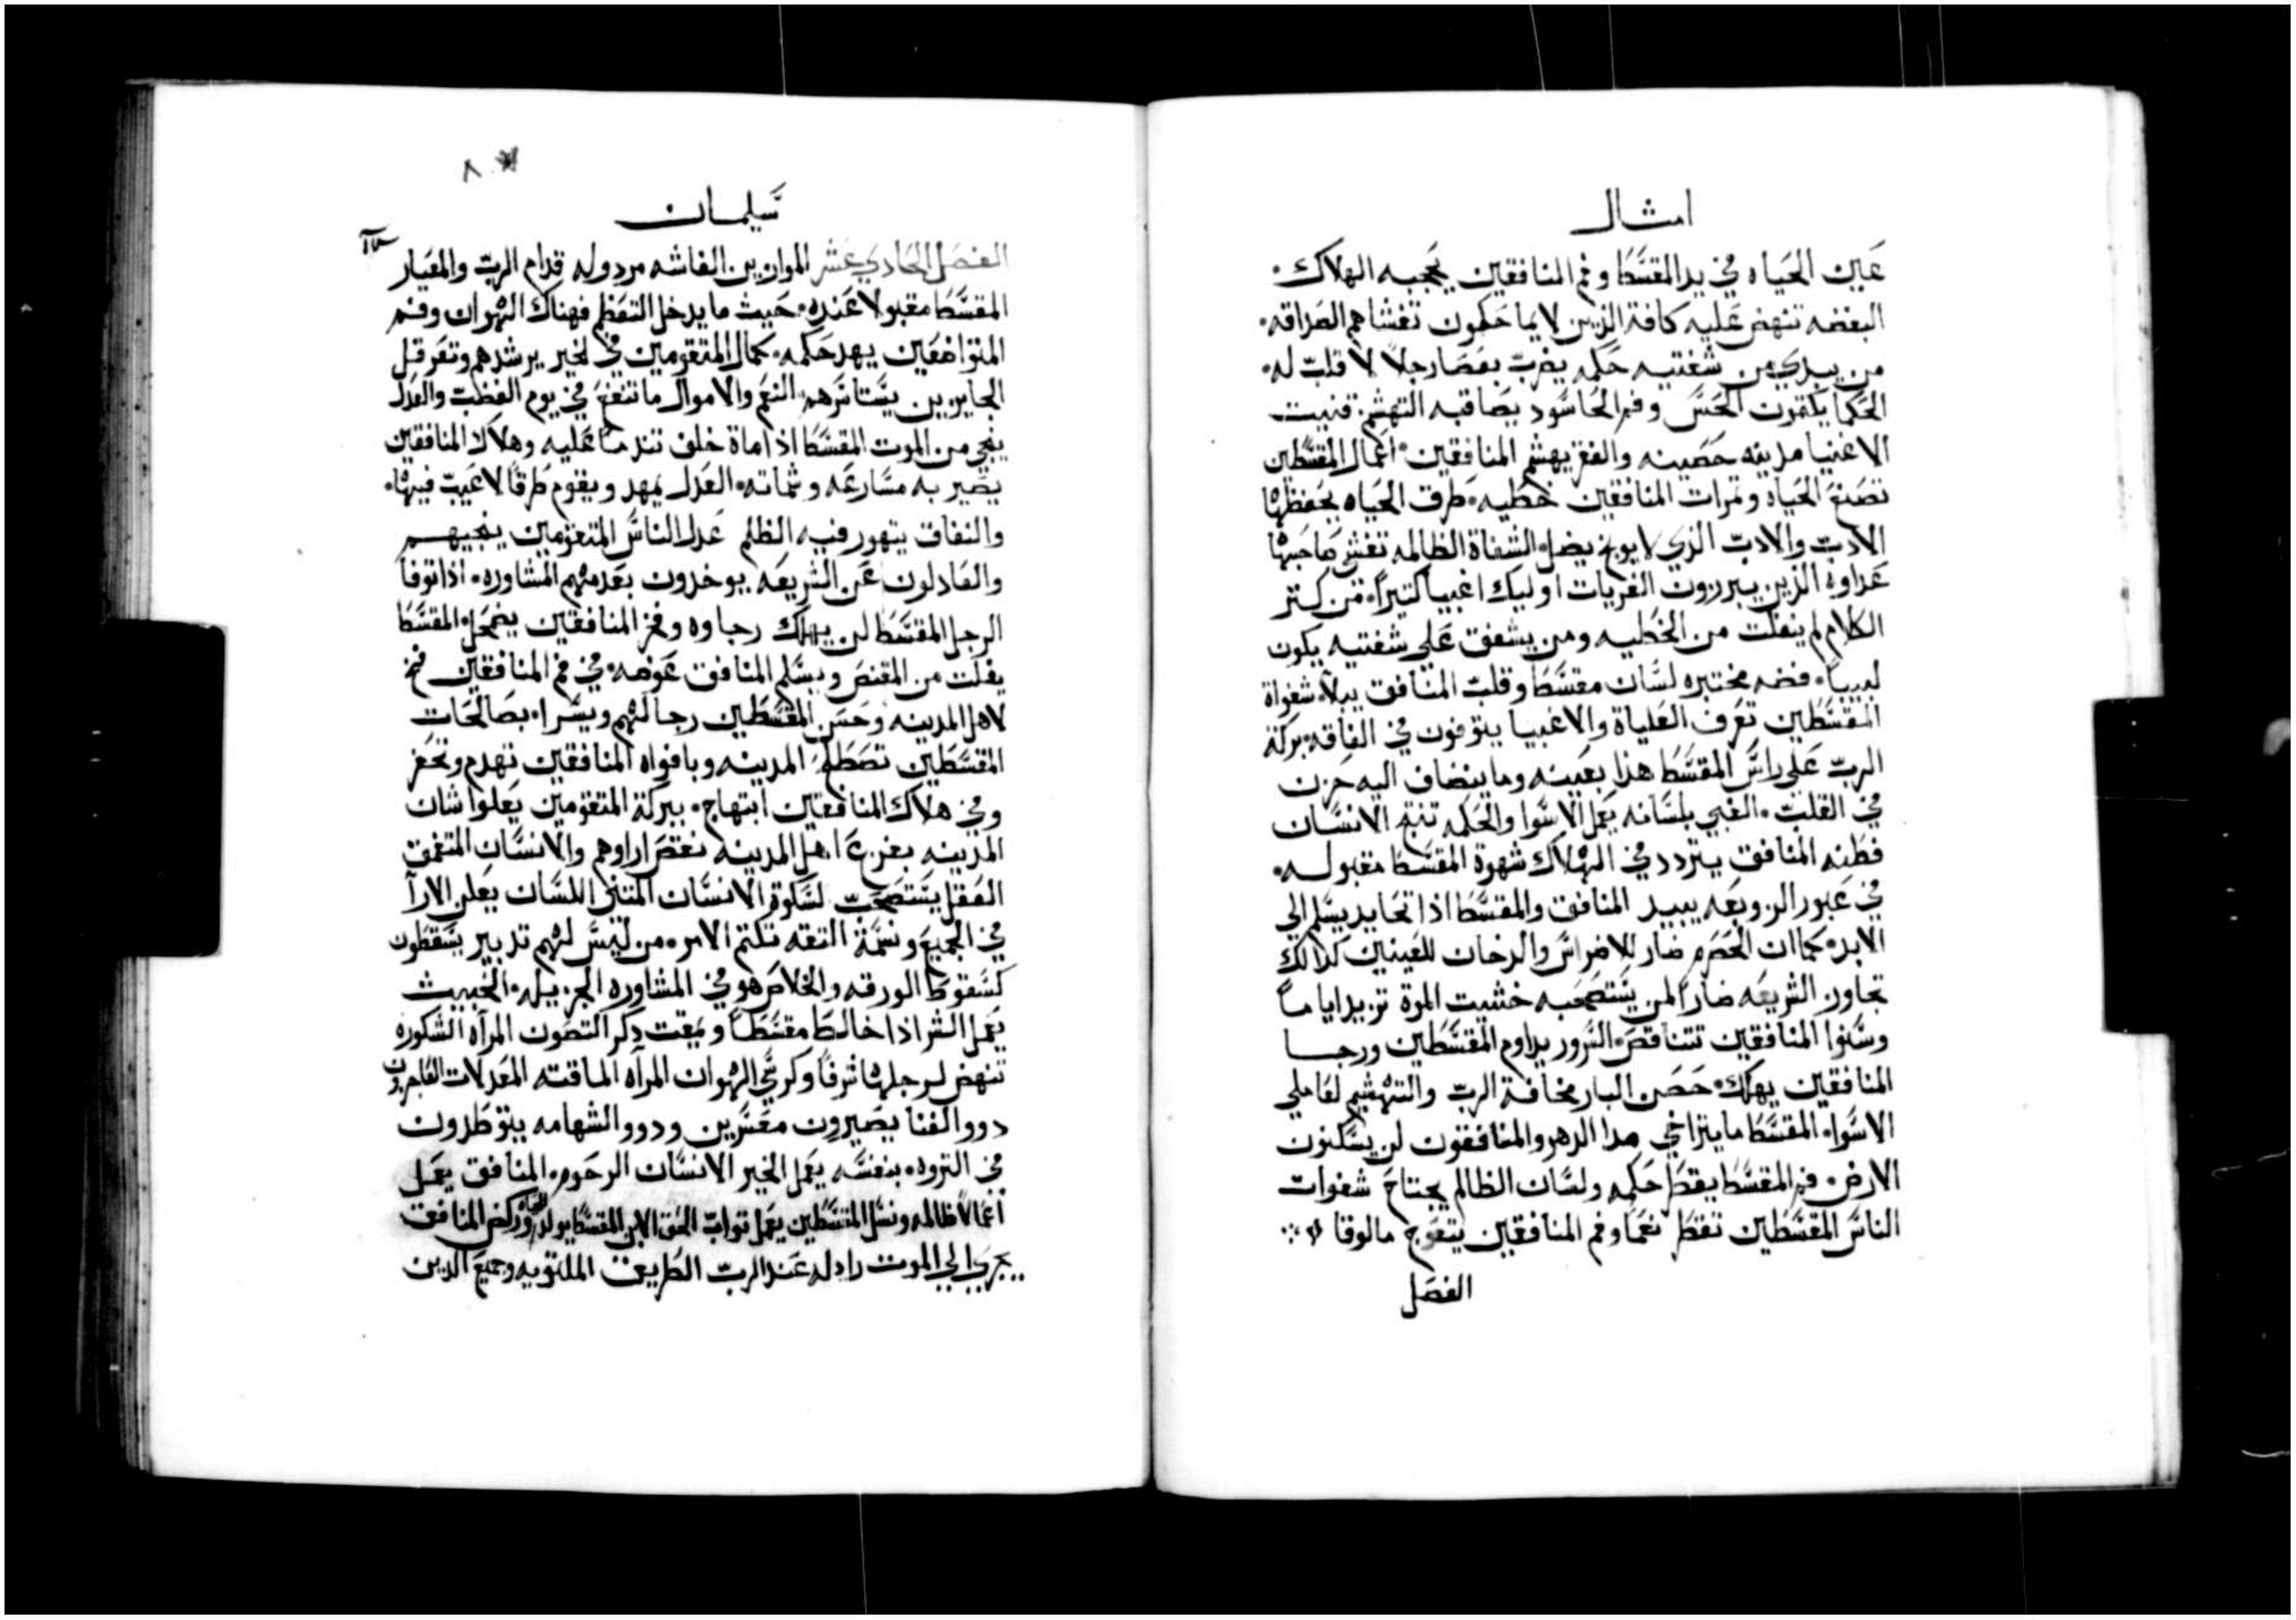 امثال
عين الحياه في يد المقسط وفم المنافقين يحجبه الهلاك
البغضه تنهض عليه كافة الذين لا يماحكون تغشاهم الصداقه
من يبدي من شفتيه حكمه يضرب بعصا رجلاً لا قلب له
الحكما يكتمون الحس وفم الحاسود يصاقبه التهشم قنيت
الاغنيا مدينه حصينه والفقر يهشم المنافقين اعمال المقسطين
تصنع الحياه وثمرات المنافقين خطيه طرق الحياه يحفظها
الادب والادب الذي لا يوبخ يضل الشفاة الظالمه تغشي صاحبها
عداوه الذين يبرزون الفريات اوليك اغبيا كتيراً من كتر
الكلام لم ينفلت من الخطيه ومن يشفق علي شفتيه يكون
لبيباً فضه مختبره لسان مقسط وقلب المنافق يبلا شفواة
المقسطين تعرف العلياة والاغبيا يتوفون في الفاقه بركة
الرب علي راس المقسط هذا بعينه وما ينضاف اليه حزن
في القلب الغبي بلسانه يعمل الاسوا والحكمه تنتج الانسان
فطنه المنافق يتردد في الهلاك شهوة المقسط مقبوله
في عبور الزوبعه يبيد المنافق والمقسط اذا تحايد يسلم الي
الابد كما ان الحصرم ضار للاضراس والدخان للعينين كذالك
تجاوز الشريعه ضاراً لمن يستصحبه خشيت الرب تزيد اياماً
وسنوا المنافقين تتناقص السرور يداوم المقسطين ورجا
المنافقين يهلك حصن البار مخافة الرب والتهشيم لفاعلي
الاسوا المقسط ما يتراخي مدا الدهر والمنافقون لن يسكنون
الارض فم المقسط يقطر حكمه ولسان الظالم يجتاح شفوات
الناس المقسطين تقطر نعماً وفم المنافقين يتعوج مالوفا
الفصل
سليمان
الفصل الحادي عشر الموازين الغاشه مردوله قدام الرب والمعيار
المقسط مقبولا عنده حيث ما يدخل التعظم فهناك الهوان وفم
المتواضعين يهد حكمه كمال المتقومين في الخير يرشدهم وتعرقل
الجايرين يستاسرهم النعم والاموال ما تنفع في يوم الغضب والعدل
ينجي من الموت المقسط اذا ماة خلف تندماً عليه وهلاك المنافقين
يصير به مسارعه وشماته العدل يمهد ويقوم طرقاً لا عيب فيها
والنفاق يتهور فيه الظلم عدل الناس المتقومين ينجيهم
والعادلون عن الشريعه يوخذون بعدمهم المشاوره اذا توفا
الرجل المقسط لن يهلك رجاوه وفخر المنافقين يضمحل المقسط
يفلت من المقنص ويسلم المنافق عوضه في فم المنافقين فخ
لاهل المدينه وحسن المقسطين رجا لهم ويسرا بصالحات
المقسطين تصطلح المدينه وبافواه المنافقين تهدم وتحفر
وفي هلاك المنافقين ابتهاج ببركة المتقومين يعلوا شان
المدينه بفزع اهل المدينه نقص اراوهم والانسان المتعمق
العقل يستصحب لسكوة الانسان المتني اللسان يعلن الارآ
في الجميع ونسمة الثقه تكتم الامر من ليس لهم تدبير يسقطون
كسقوط الورقه والخلاص هو في المشاوره الجزيله الخبيث
يعمل الشر اذا خالط مقسطاً ويمقت ذكر التصون المرآه الشكوره
تنهض لرجلها شرفاً وكرسي الهوان المرآه الماقته المعدلات العاجزون
ذوو الغنا يصيرون معسرين وذوو الشهامه يتوطدون
في الثروه بنفسه يعمل الخير الانسان الرحوم المنافق يعمل
اعمالاً ظالمه ونسل المقسطين يعمل ثواب الحق الابن المقسط يولد للحياه وركض المنافق
يجري الي الموت رادله عند الرب الطريق الملتويه وجميع الذين